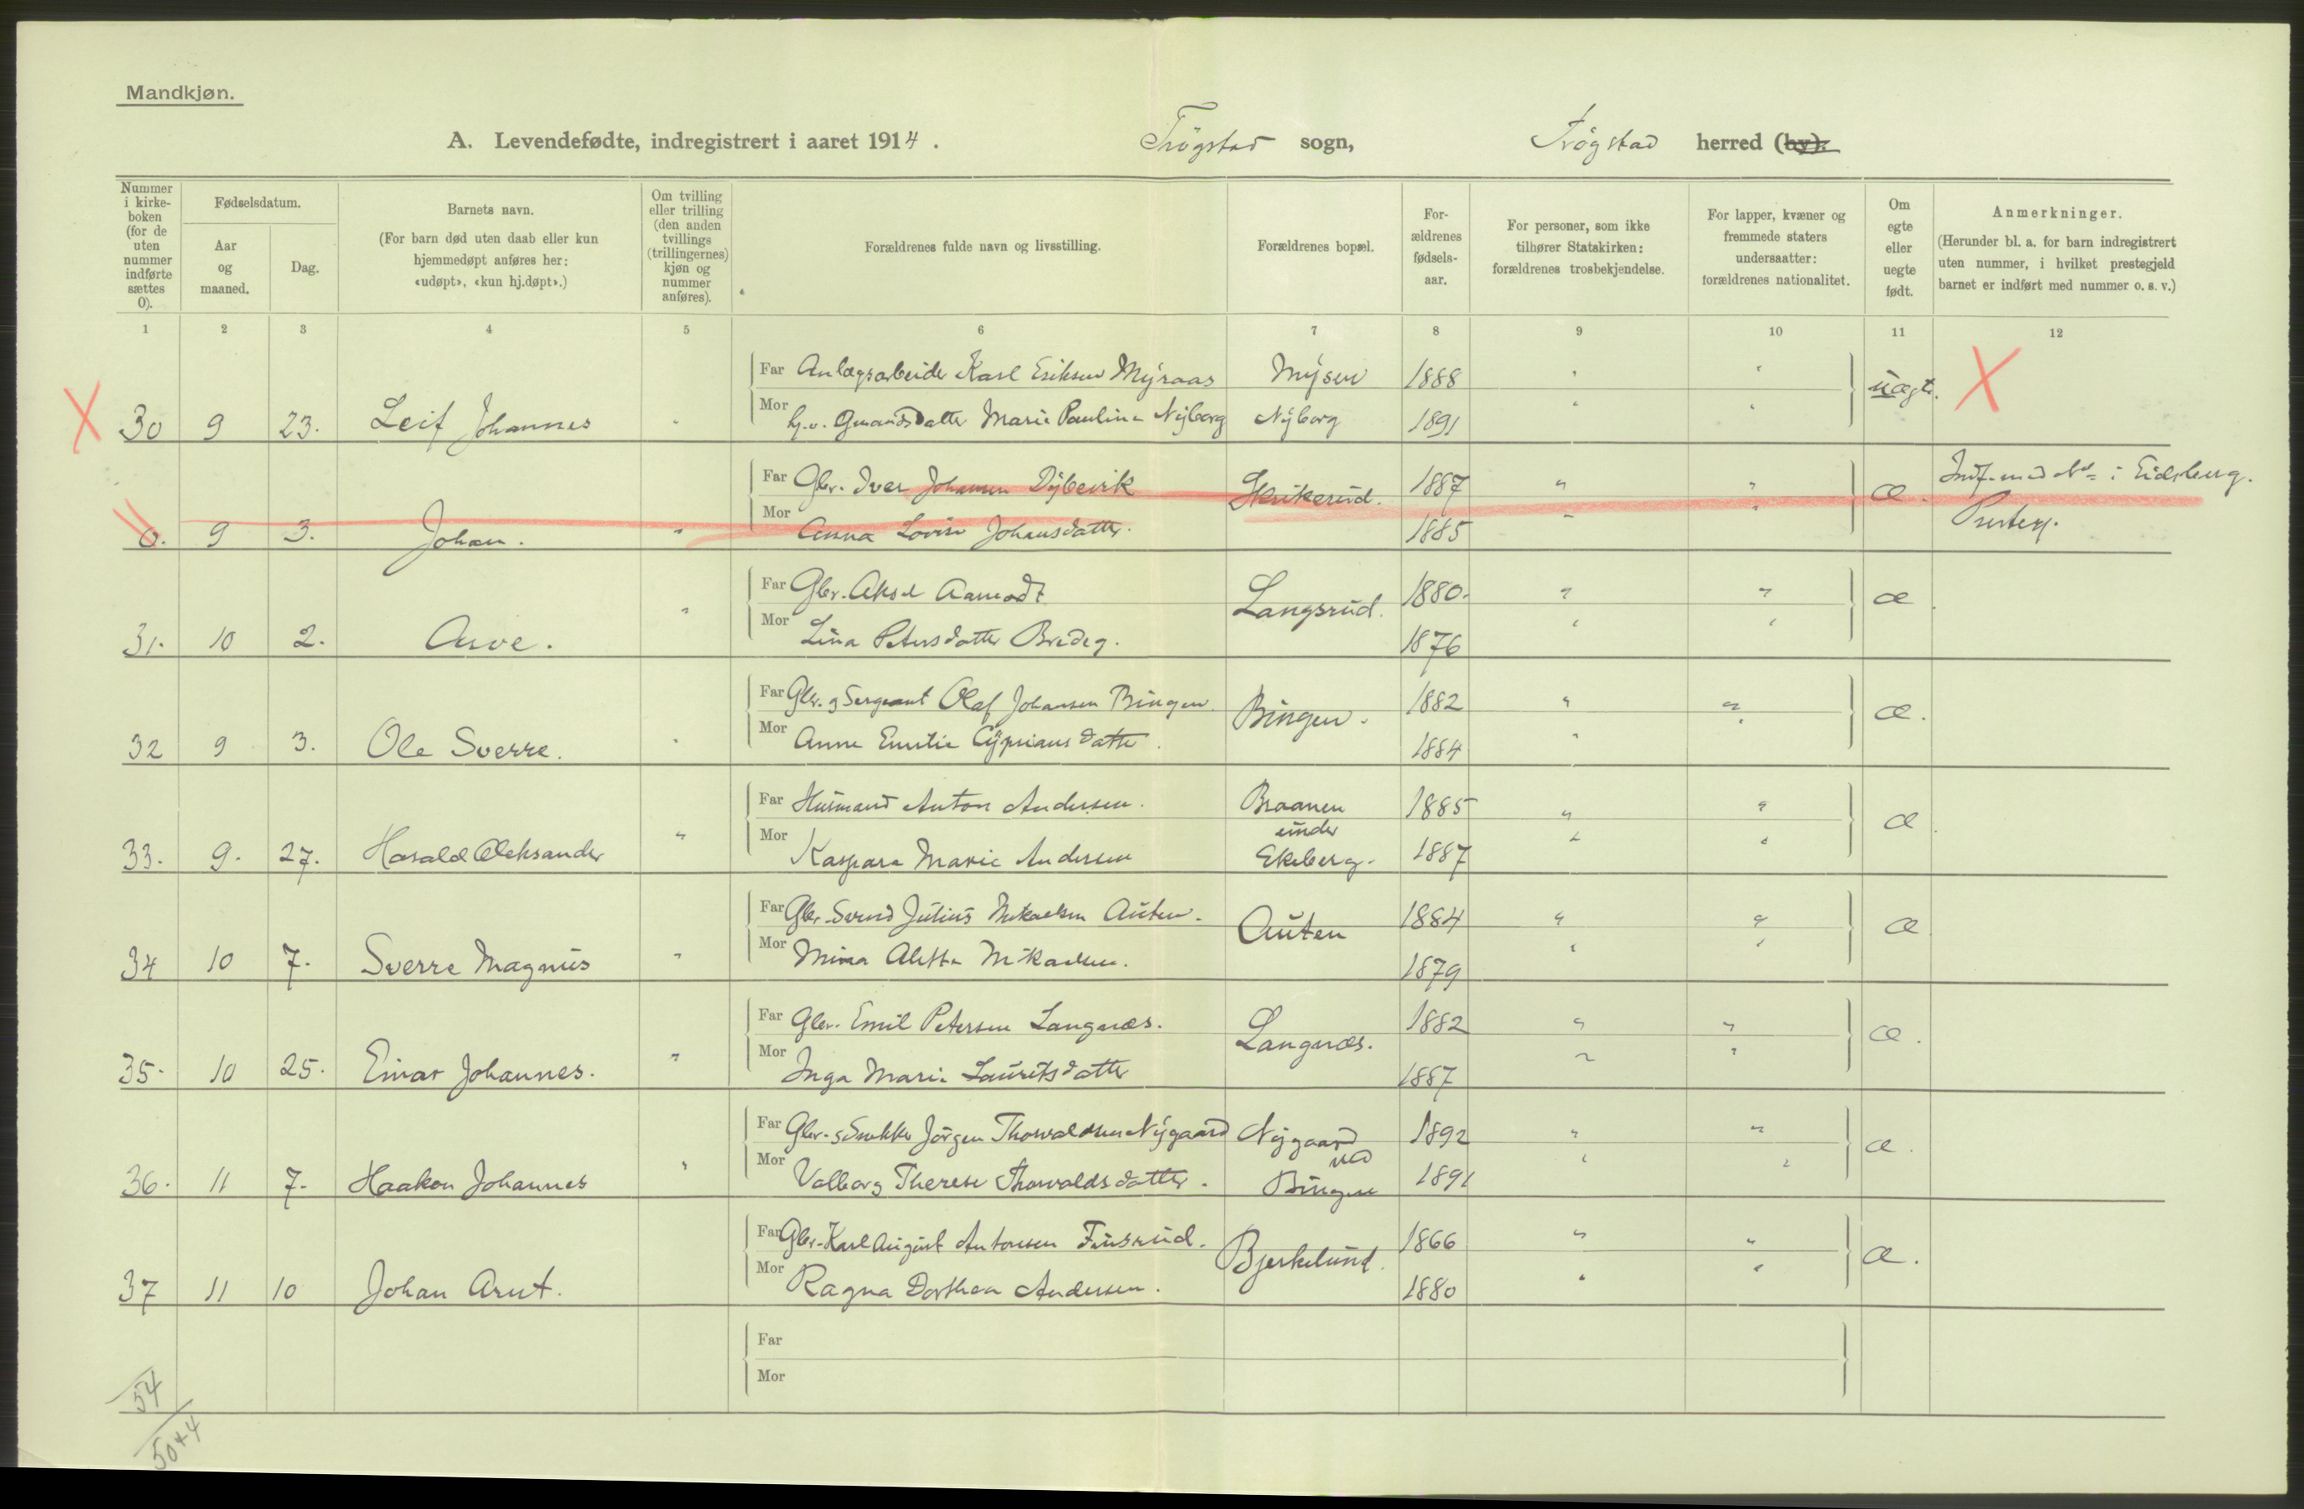 Mandkjøn.
A. Levendefødte, indregistrert i aaret 1914. Trøgstad sogn, Trøgstad herred (by).
Nummer i kirke-boken (for de uten nummer indførte sættes 0).
Fødselsdatum.
Aar og maaned.
Dag.
Barnets navn.
(For barn død uten daab eller kun hjemmedøpt anføres her: «udøpt», «kun hj.døpt».)
Om tvilling eller trilling (den anden tvillings (trillingernes) kjøn og nummer anføres).
Forældrenes fulde navn og livsstilling.
Forældrenes bopæl.
For-ældrenes fødsels-aar.
For personer, som ikke tilhører Statskirken: forældrenes trosbekjendelse.
For lapper, kvæner og fremmede staters undersaatter: forældrenes nationalitet.
Om egte eller uegte født.
Anmerkninger.
(Herunder bl. a. for barn indregistrert uten nummer, i hvilket prestegjeld barnet er indført med nummer o. s. v.)
1 2 3 4 5 6 7 8 9 10 11 12
Far Anlægsarbeider Karl Eriksen Myraas Mysen 1888 " "
X 30 9 23. Leif Johannes " Mor Gmandsdatter Marie Pauline Nyborg Nyborg 1891 " " uægt. X
Far Gbr. Iver Johansen Dybevik Skrikerud. 1887 " " Indf. med No i Eidsberg.
0. 9 3. Johan. " Mor Anna Lovise Johansdatter. 1885 " " æ. Presteg.
Far Gbr. Aksel Aamodt Langsrud. 1880. " "
31. 10 2. Arve. " Mor Lina Petersdatter Bredeg. 1876 " " æ.
Far Gbr. og Sergeant Olaf Johansen Bingen. Bingen. 1882 " "
32 9 3. Ole Sverre. " Mor Anne Emilie Cyprians datter. 1884 " " æ.
Far Husmand Anton Andersen. Braanen under 1885 " "
33. 9. 27. Harald Aleksander " Mor Kaspara Marie Andersen Ekeberg. 1887 " " æ.
Far Gbr. Svend Julius Mikaelsen Auten. Auten 1884 " "
34 10 7. Sverre Magnus " Mor Mina Alette Mikaelsen. 1879 " " æ
Far Gbr. Emil Petersen Langnæs. Langnæs. 1882 " "
35. 10 25. Einar Johannes. " Mor Inga Marie Lauritsdatter 1887 " " æ.
Far Gbr. og Snekker Jørgen Thorvaldsen Nygaard Nygaard ved 1892 " "
36. 11 7. Haakon Johannes " Mor Valborg Therese Thorvaldsdatter. Bingen 1891 " " æ.
Far Gbr. Karl August Antonsen Finsrud. Bjerkelund. 1866 " "
37 11 10 Johan Arnt. Mor Ragna Dorthea Andersen. 1880 " " æ.
Far
Mor
54
50+4